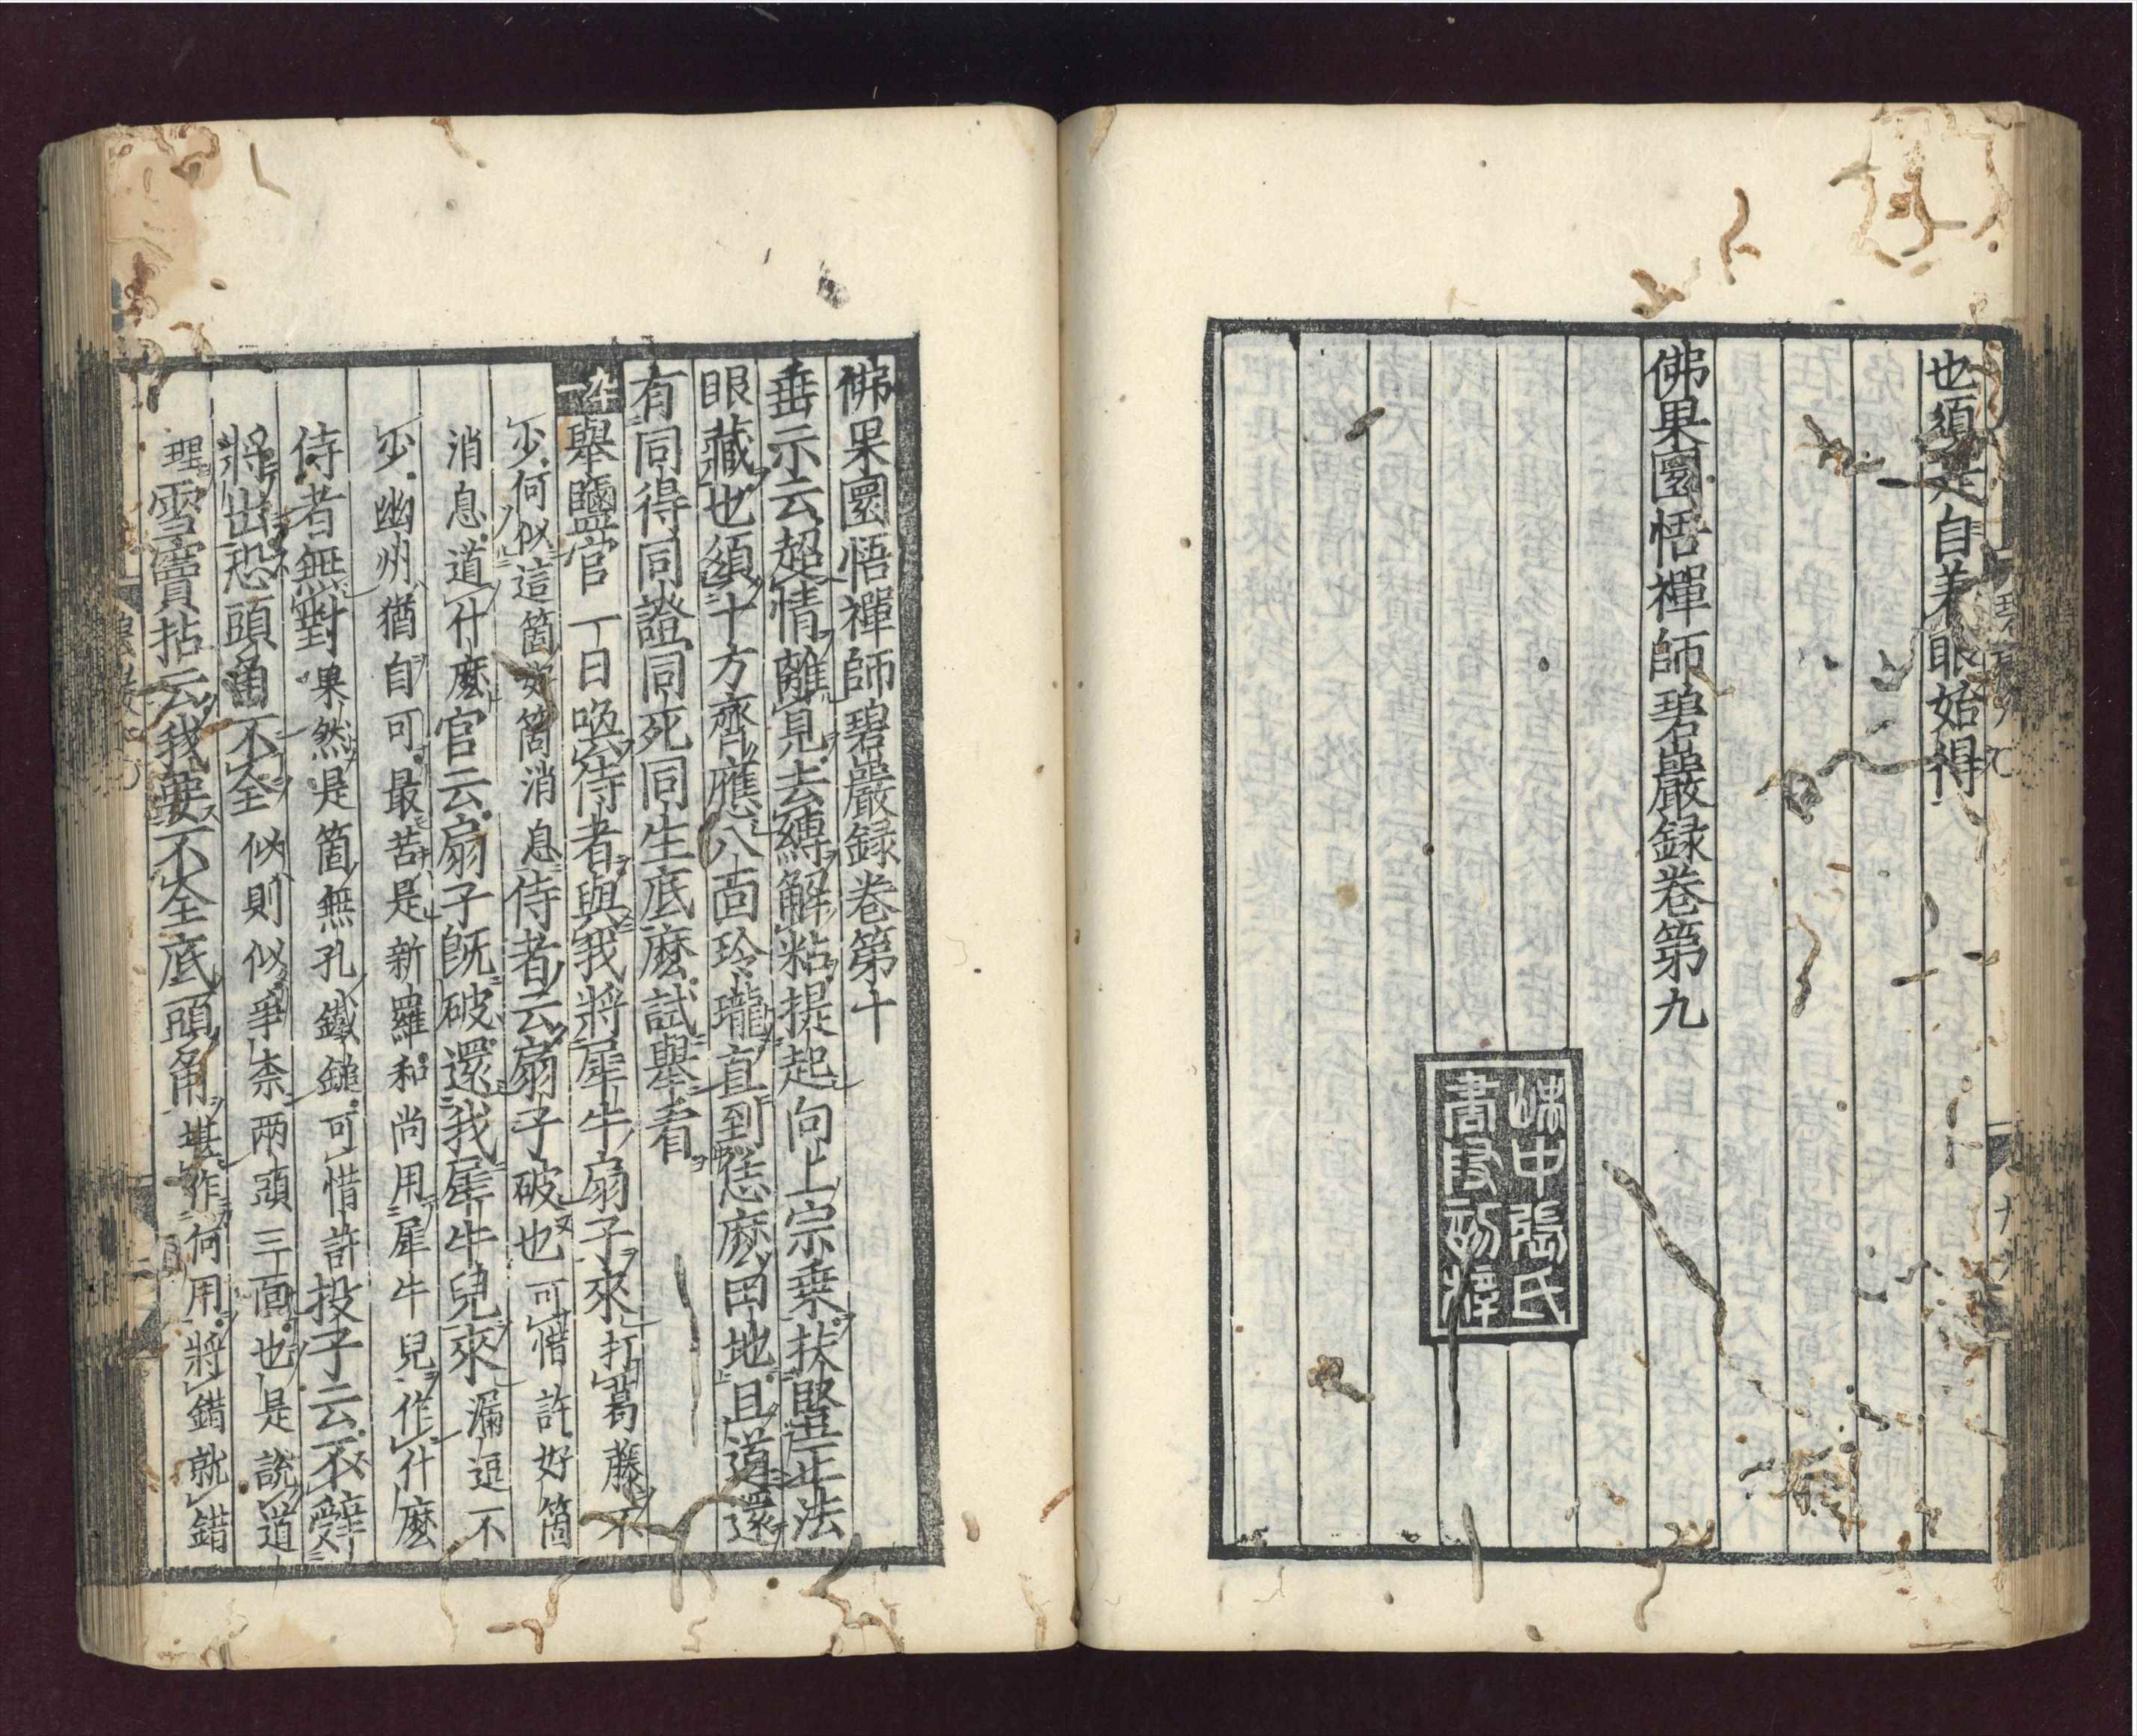 也須是自着眼始得
佛果圜悟禪師碧巖録卷第九
嵊中張氏
書隱刻梓
佛果圜悟禪師碧巖録卷第十
垂示云超情離見去縛解粘提起向上宗乗扶竪正法
眼藏也須十方齊應八面玲瓏直到恁麽田地且道還
有同得同證同死同生底麽試舉看
舉鹽官一日喚侍者與我將犀牛扇子來打葛藤不
少何似這箇好箇消息侍者云扇子破也可惜許好箇
消息道什麽官云扇子既破還我犀牛兒來漏逗不
少幽州猶自可最苦是新羅和尚用犀牛兒作什麽
侍者無對果然是箇無孔鐵鎚可惜許投子云不辭
將出恐頭角不全似則似爭柰兩頭三面也是說道
理雪竇拈云我要不全底頭角堪作何用將錯就錯